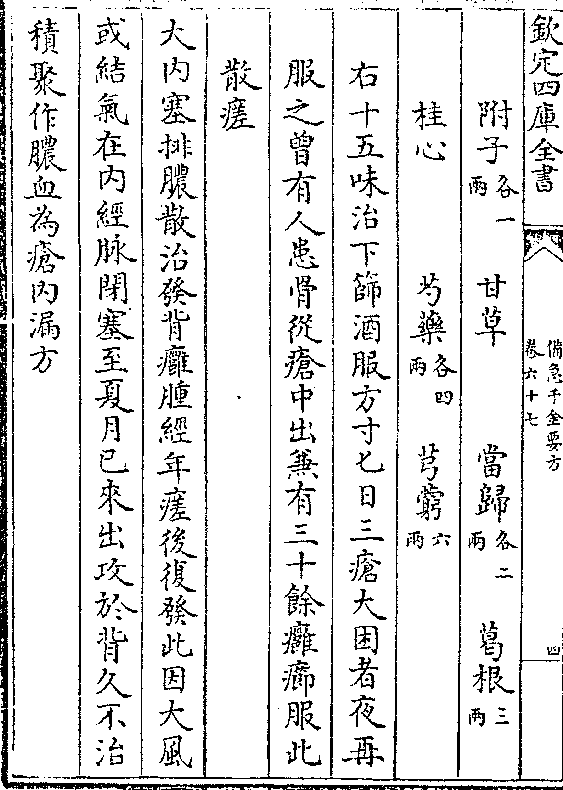 欽定四庫全書
備急千金要方
卷六十七
四
附子各一兩 甘草 當歸各二兩 葛根三兩
桂心 芍藥各四兩 芎藭六兩
右十五味治下篩酒服方寸匕日三瘡大困者夜再
服之曾有人患骨從瘡中出兼有三十餘癰癤服此
散瘥
大內塞排膿散治發背癰腫經年瘥後復發此因大風
或結氣在內經脉閉塞至夏月已來出攻於背久不治
積聚作膿血為瘡內漏方